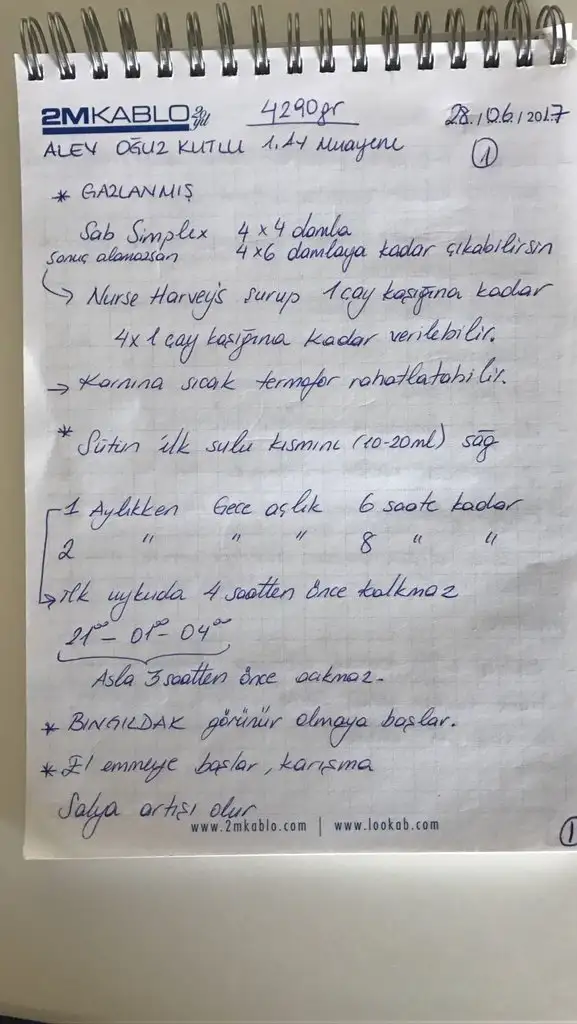 2MKABLO 20 yıl
4290gr
28./06/2017
ALEV OĞUZ KUTLU 1. Ay Muayene
1
* GAZLANMIŞ
Sab Simplex 4x4 damla
sonuç alamazsan 4x6 damlaya kadar çıkabilirsin
→ Nurse Harvey's şurup 1 çay kaşığına kadar
4x1 çay kaşığına kadar verilebilir.
→ Karnına sıcak termofor rahatlatabilir.
* Sütün ilk sulu kısmını (10-20ml) sağ
1 Aylıkken Gece açlık 6 saate kadar
2 " " " 8 " "
→ ilk uykuda 4 saatten önce kalkmaz
21⁰⁰ - 01⁰⁰ - 04⁰⁰
Asla 3 saatten önce acıkmaz.
* BINGILDAK görünür olmaya başlar.
* El emmeye başlar, karışma
Salya artışı olur
www.2mkablo.com | www.lookab.com
1